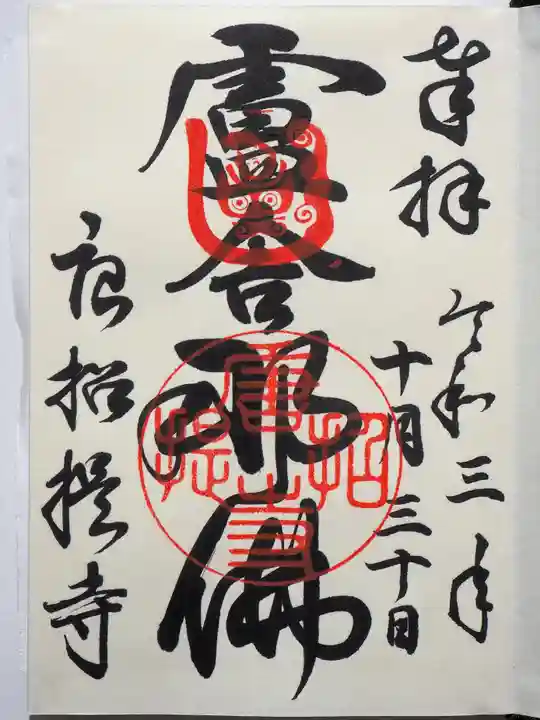 奉拝
令和三年
十月三十日
盧舎那佛
唐招提寺
唐招提寺